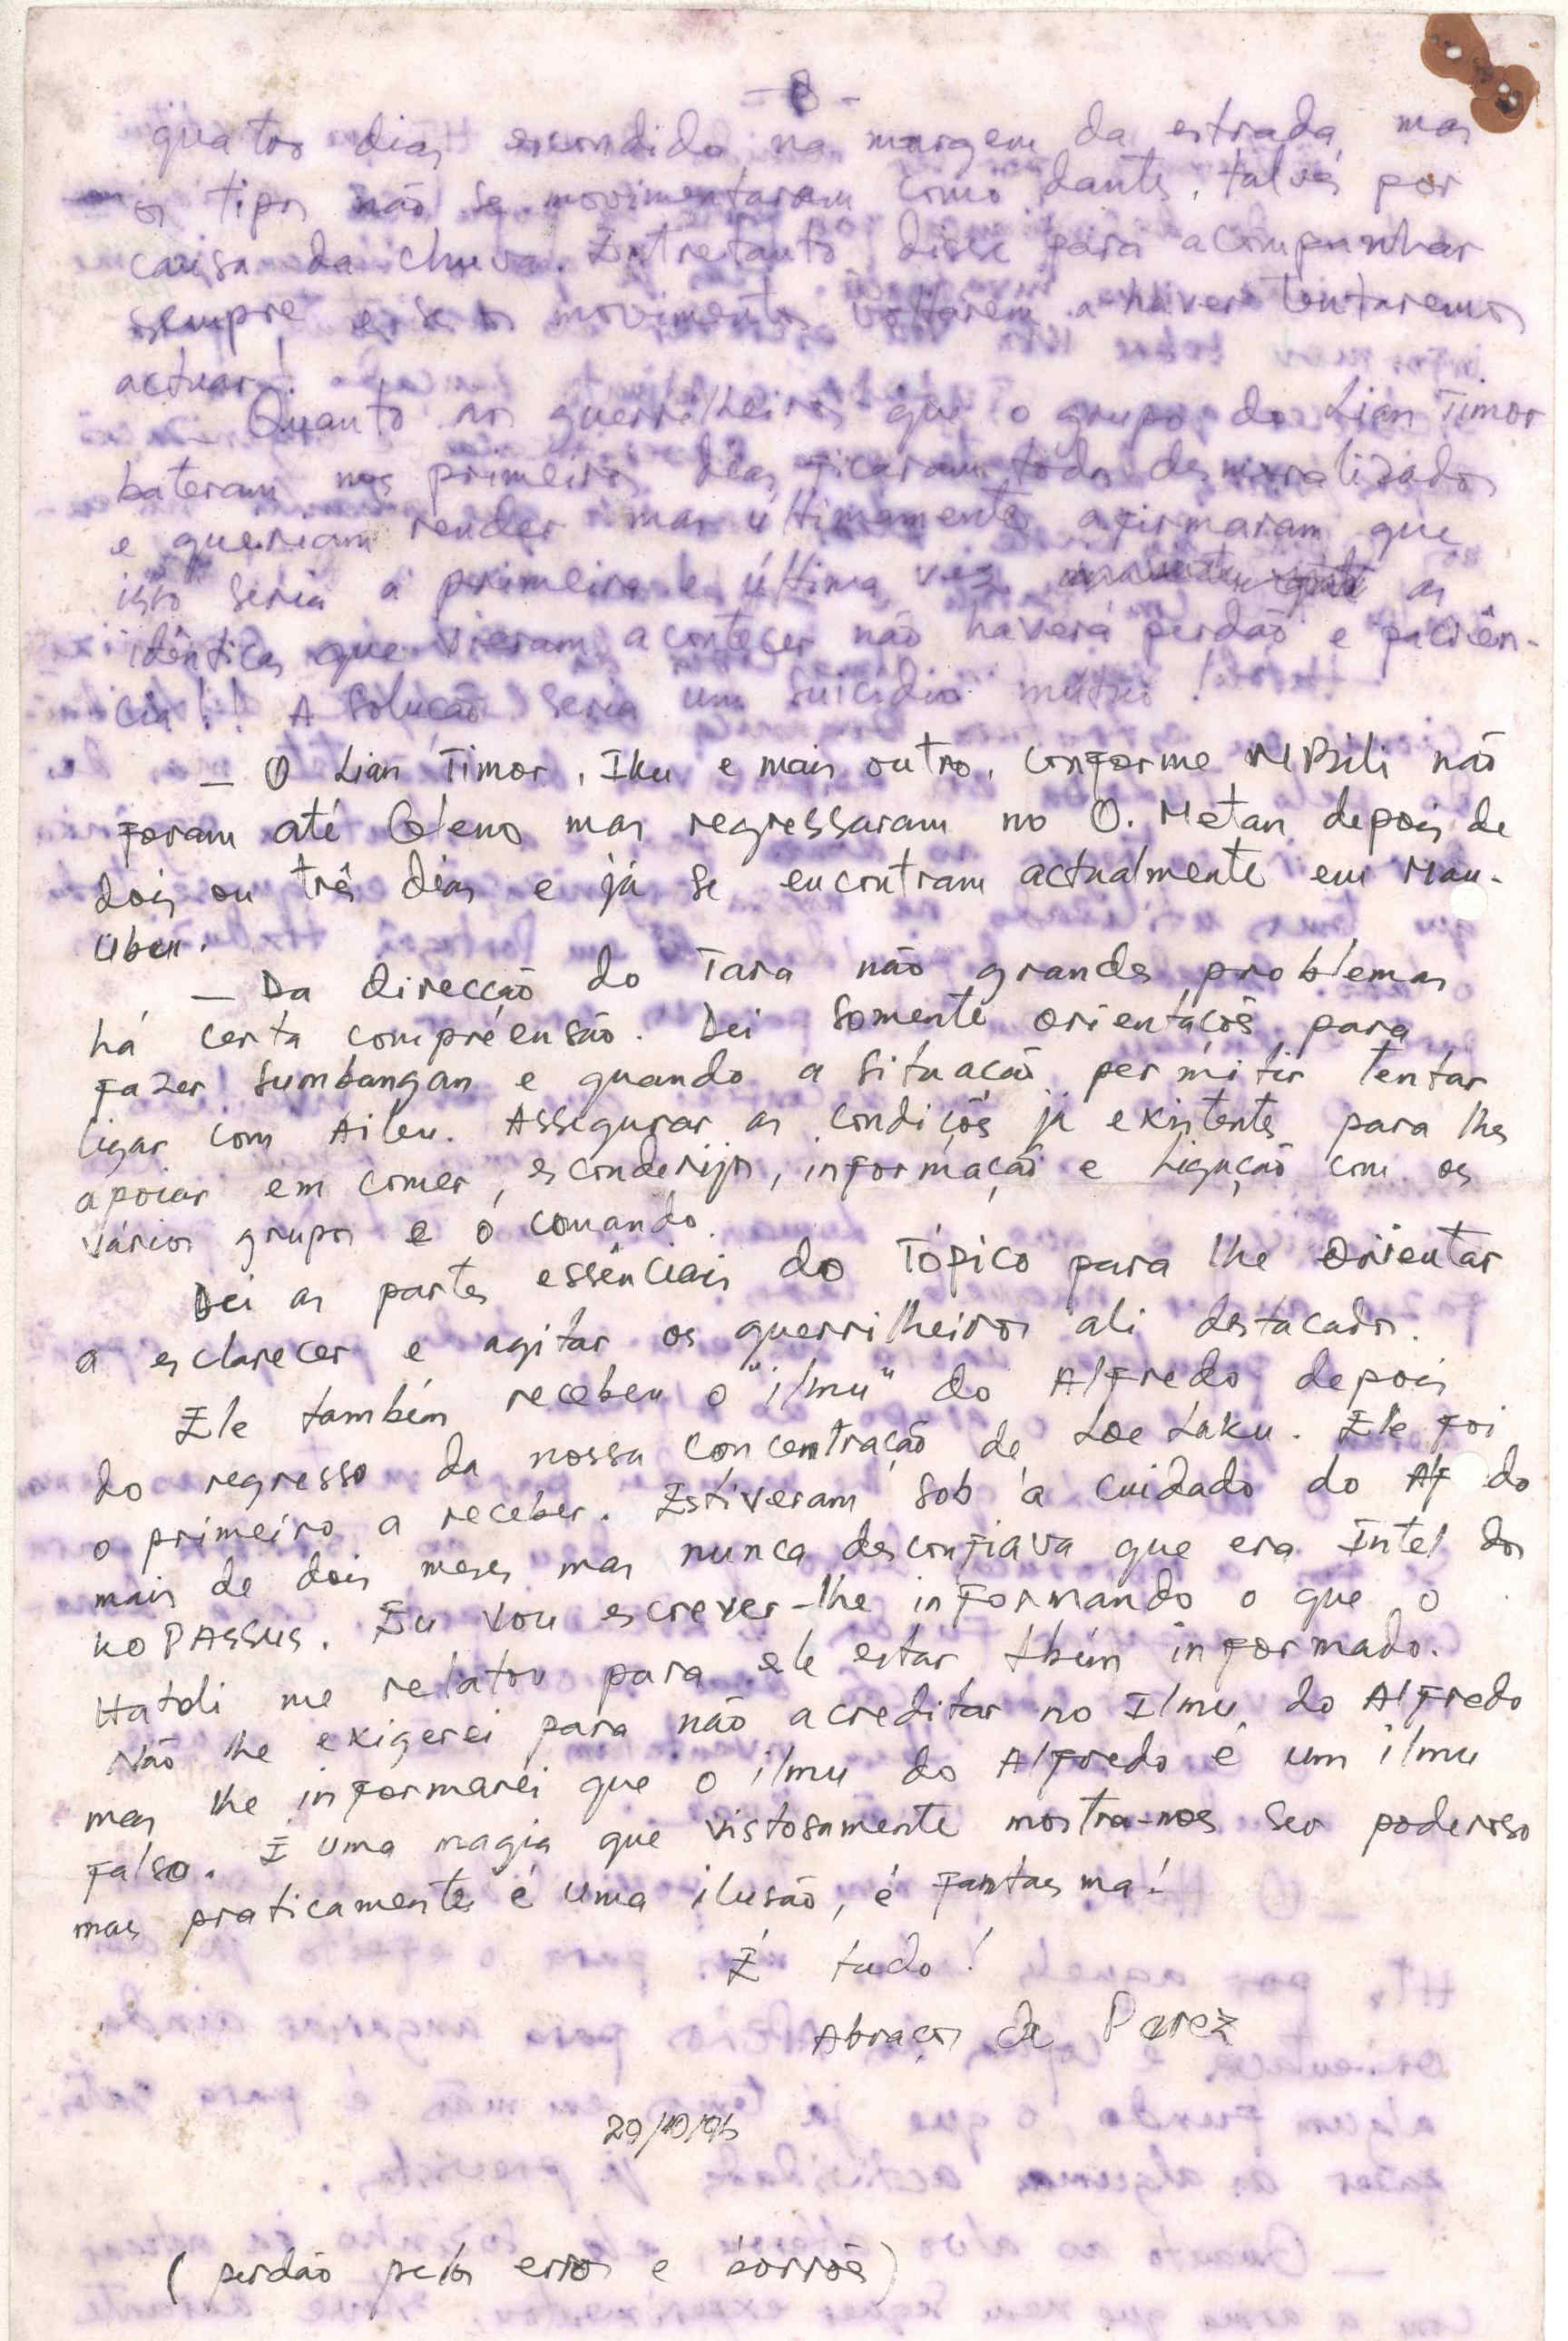 - 8 -
quatro dias escondido na margem da estrada, mas
os tipos não se movimentaram como dants, talvés por
causa da chuva. Entretanto disse para acompanhar
sempre e se os movimentos voltarem a haver tentaremos
actuar!
Quanto aos guerrilheiros que o grupo do Lian Timor
bateram nos primeiros dias ficaram todos desmoralizados
e queriam render mas últimamente afirmaram que
isto seria a primeira e última vez as
idênticas que vieram acontecer não haverá perdão e paciên-
cia!! A solução seria um suicídio mútuo!
— O Lian Timor, Iku e mais outro, conforme MBili não
foram até Gleno mas regressaram no O. Metan depois de
dois ou três dias e já se encontram actualmente em Mau-
Ubu.
— Da direcção do Tara não grandes problemas
há certa compreensão. Dei somente orientaçõs para
fazer sumbangan e quando a situação permitir tentar
ligar com Aileu. Assegurar as condiçõs já existentes para lhes
apoiar em comer, esconderijos, informação e ligação com os
vários grupos e o comando.
Dei as partes essênciais do Tópico para lhe orientar
a esclarecer e agitar os guerrilheiros ali destacados.
Ele também recebeu o "ilmu" do Alfredo depois
do regresso da nossa concentração de Loe Laku. Ele foi
o primeiro a receber. Estiveram sob a cuidado do Af do
mais de dois meses mas nunca desconfiava que era Intel dos
KOPASSUS. Eu vou escrever-lhe informando o que o
Hatdi me relatou para ele estar tbém informado.
Não lhe exigerei para não acreditar no Ilmu do Alfredo
mas lhe informarei que o ilmu do Alfredo é um ilmu
falso. É uma magia que vistosamente mostra-nos ser poderoso
mas praticamente é uma ilusão, é fantasma!
É tudo!
Abraços de Perez
29/10/96
(perdão pelos erros e borrõs)